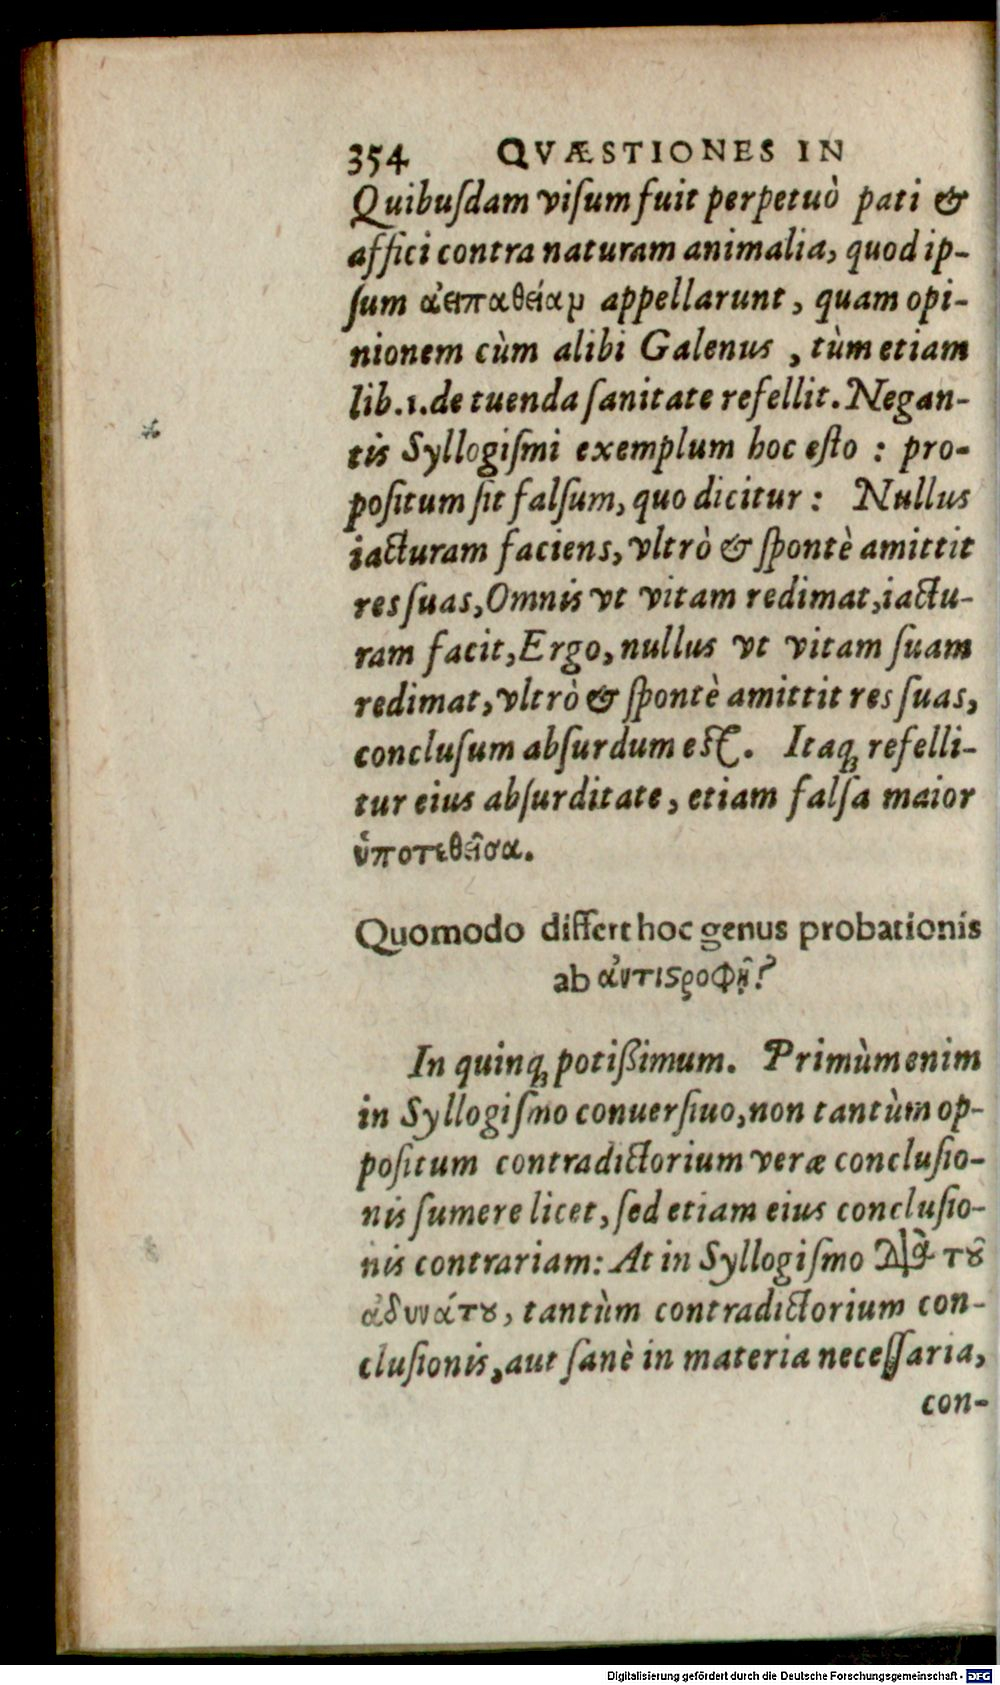 354 QVÆSTIONES IN
Quibuſdam viſum fuit perpetuò pati &
affici contra naturam animalia, quod ip-
ſum ἀειπαθείαν appellarunt, quam opi-
nionem cùm alibi Galenus, tùm etiam
lib.1.de tuenda ſanitate refellit. Negan-
tis Syllogiſmi exemplum hoc eſto : pro-
poſitum ſit falſum, quo dicitur : Nullus
iacturam faciens, vltrò & ſpontè amittit
res ſuas, Omnis vt vitam redimat, iactu-
ram facit, Ergo, nullus vt vitam ſuam
redimat, vltrò & ſpontè amittit res ſuas,
concluſum abſurdum eſt. Itaqꝫ refelli-
tur eius abſurditate, etiam falſa maior
ὑποτεθεῖσα.
Quomodo differt hoc genus probationis
ab ἀντιςροφῇ?
In quinqꝫ potißimum. Primùm enim
in Syllogiſmo conuerſiuo, non tantùm op-
poſitum contradictorium veræ concluſio-
nis ſumere licet, ſed etiam eius concluſio-
nis contrariam: At in Syllogiſmo Διὰ τȣ͂
ἀδυνάτȣ, tantùm contradictorium con-
cluſionis, aut ſanè in materia neceſſaria,
con-
Digitalisierung gefördert durch die Deutsche Forschungsgemeinschaft - DFG